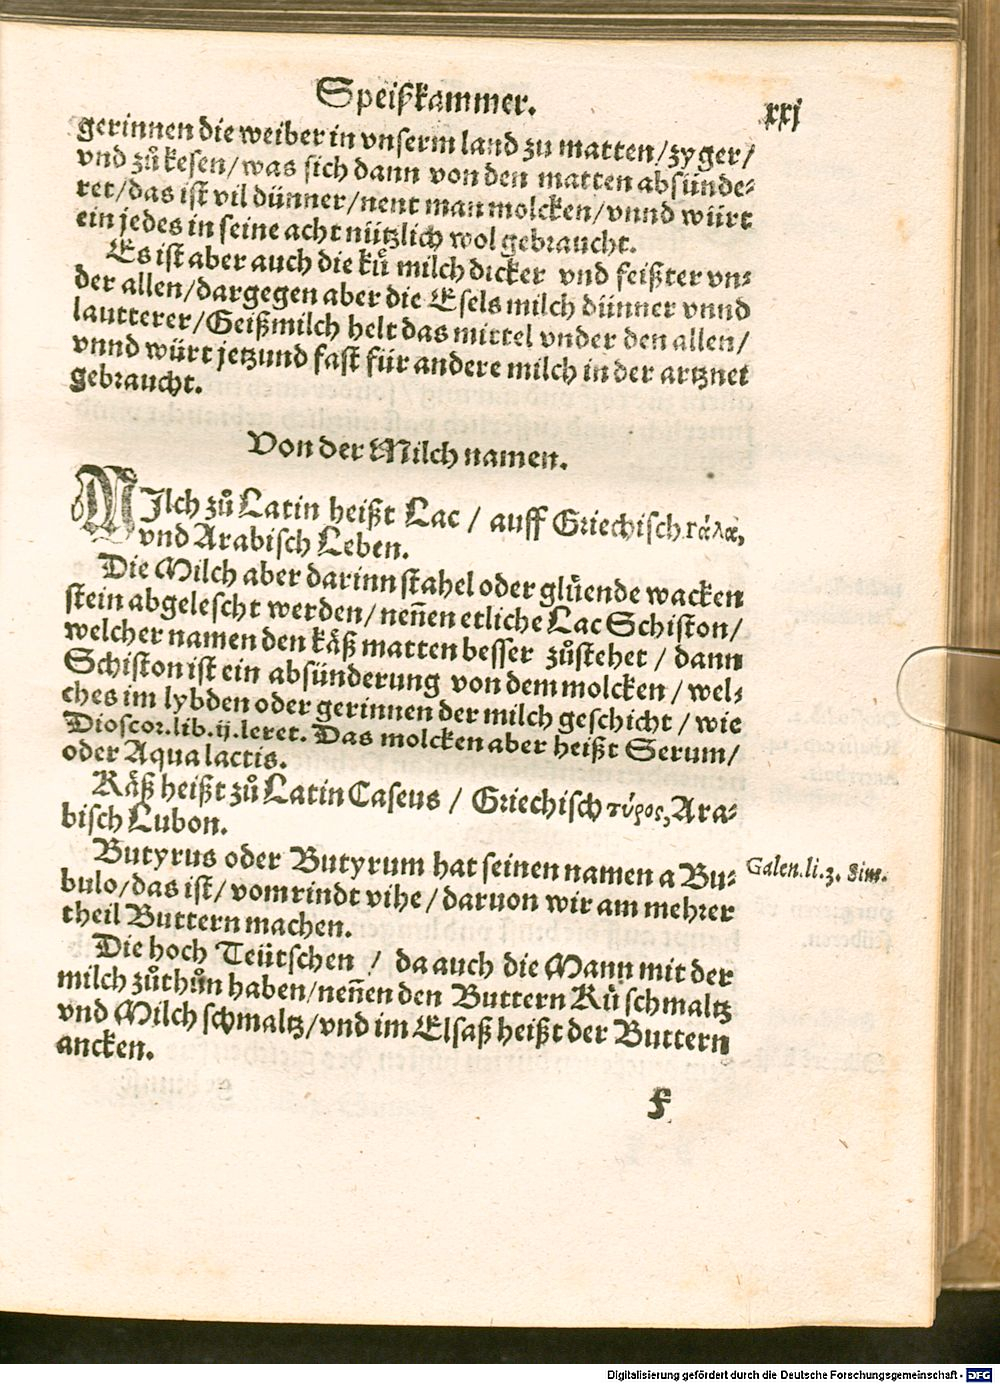 Speißkammer. xxj
gerinnen die weiber in vnserm land zu matten/zyger/
vnd zů kesen/was sich dann von den matten absünde-
ret/das ist vil dünner/nent man molcken/vnnd würt
ein jedes in seine acht nützlich wol gebraucht.
Es ist aber auch die ků milch dicker vnd feißter vn-
der allen/dargegen aber die Esels milch dünner vnnd
lautterer/Geißmilch helt das mittel vnder den allen/
vnnd würt jetzund fast für andere milch in der artznei
gebraucht.
Von der Milch namen.
MIlch zů Latin heißt Lac / auff Griechisch γάλα,
vnd Arabisch Leben.
Die Milch aber darinn stahel oder glůende wacken
stein abgelescht werden/neñen etliche Lac Schiston/
welcher namen den käß matten besser zůstehet / dann
Schiston ist ein absünderung von dem molcken / wel-
ches im lybden oder gerinnen der milch geschicht / wie
Dioscor.lib.ij.leret. Das molcken aber heißt Serum/
oder Aqua lactis.
Käß heißt zů Latin Caseus / Griechisch τύρος, Ara-
bisch Lubon.
Butyrus oder Butyrum hat seinen namen a Bu-
bulo/das ist/ vom rindt vihe / daruon wir am mehrer
theil Buttern machen.
Galen.li.3. Sim.
Die hoch Teütschen / da auch die Mann mit der
milch zůthůn haben/neñen den Buttern Ků schmaltz
vnd Milch schmaltz/vnd im Elsaß heißt der Buttern
ancken.
f
Digitalisierung gefördert durch die Deutsche Forschungsgemeinschaft - DFG